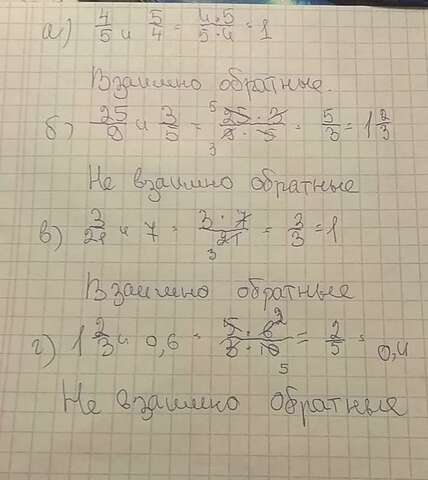 а) 4/5 и 5/4 = 4·5/5·4 = 1
Взаимно обратные.
б) 25/9 и 3/5 = 25·3/9·5 = 5/3 = 1 2/3
5
3
Не взаимно обратные
в) 3/21 и 7 = 3·7/21 = 3/3 = 1
3
Взаимно обратные
г) 1 2/3 и 0,6 = 5·6/3·10 = 2/5 = 0,4
2
5
Не взаимно обратные